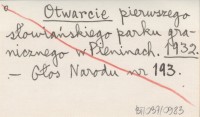 Otwarcie pierwszego
słowiańskiego parku gra-
nicznego w Pieninach. 1932.
– Głos Narodu nr 193.